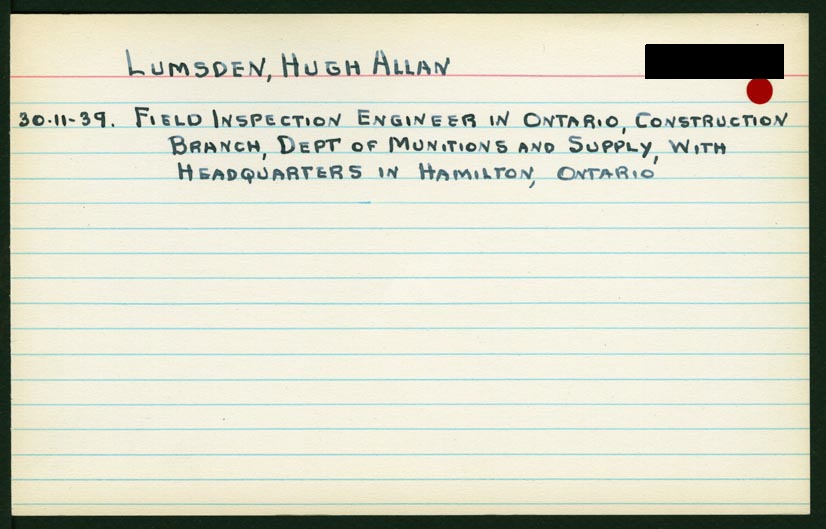 LUMSDEN, HUGH ALLAN
30-11-39. FIELD INSPECTION ENGINEER IN ONTARIO, CONSTRUCTION
BRANCH, DEPT OF MUNITIONS AND SUPPLY, WITH
HEADQUARTERS IN HAMILTON, ONTARIO